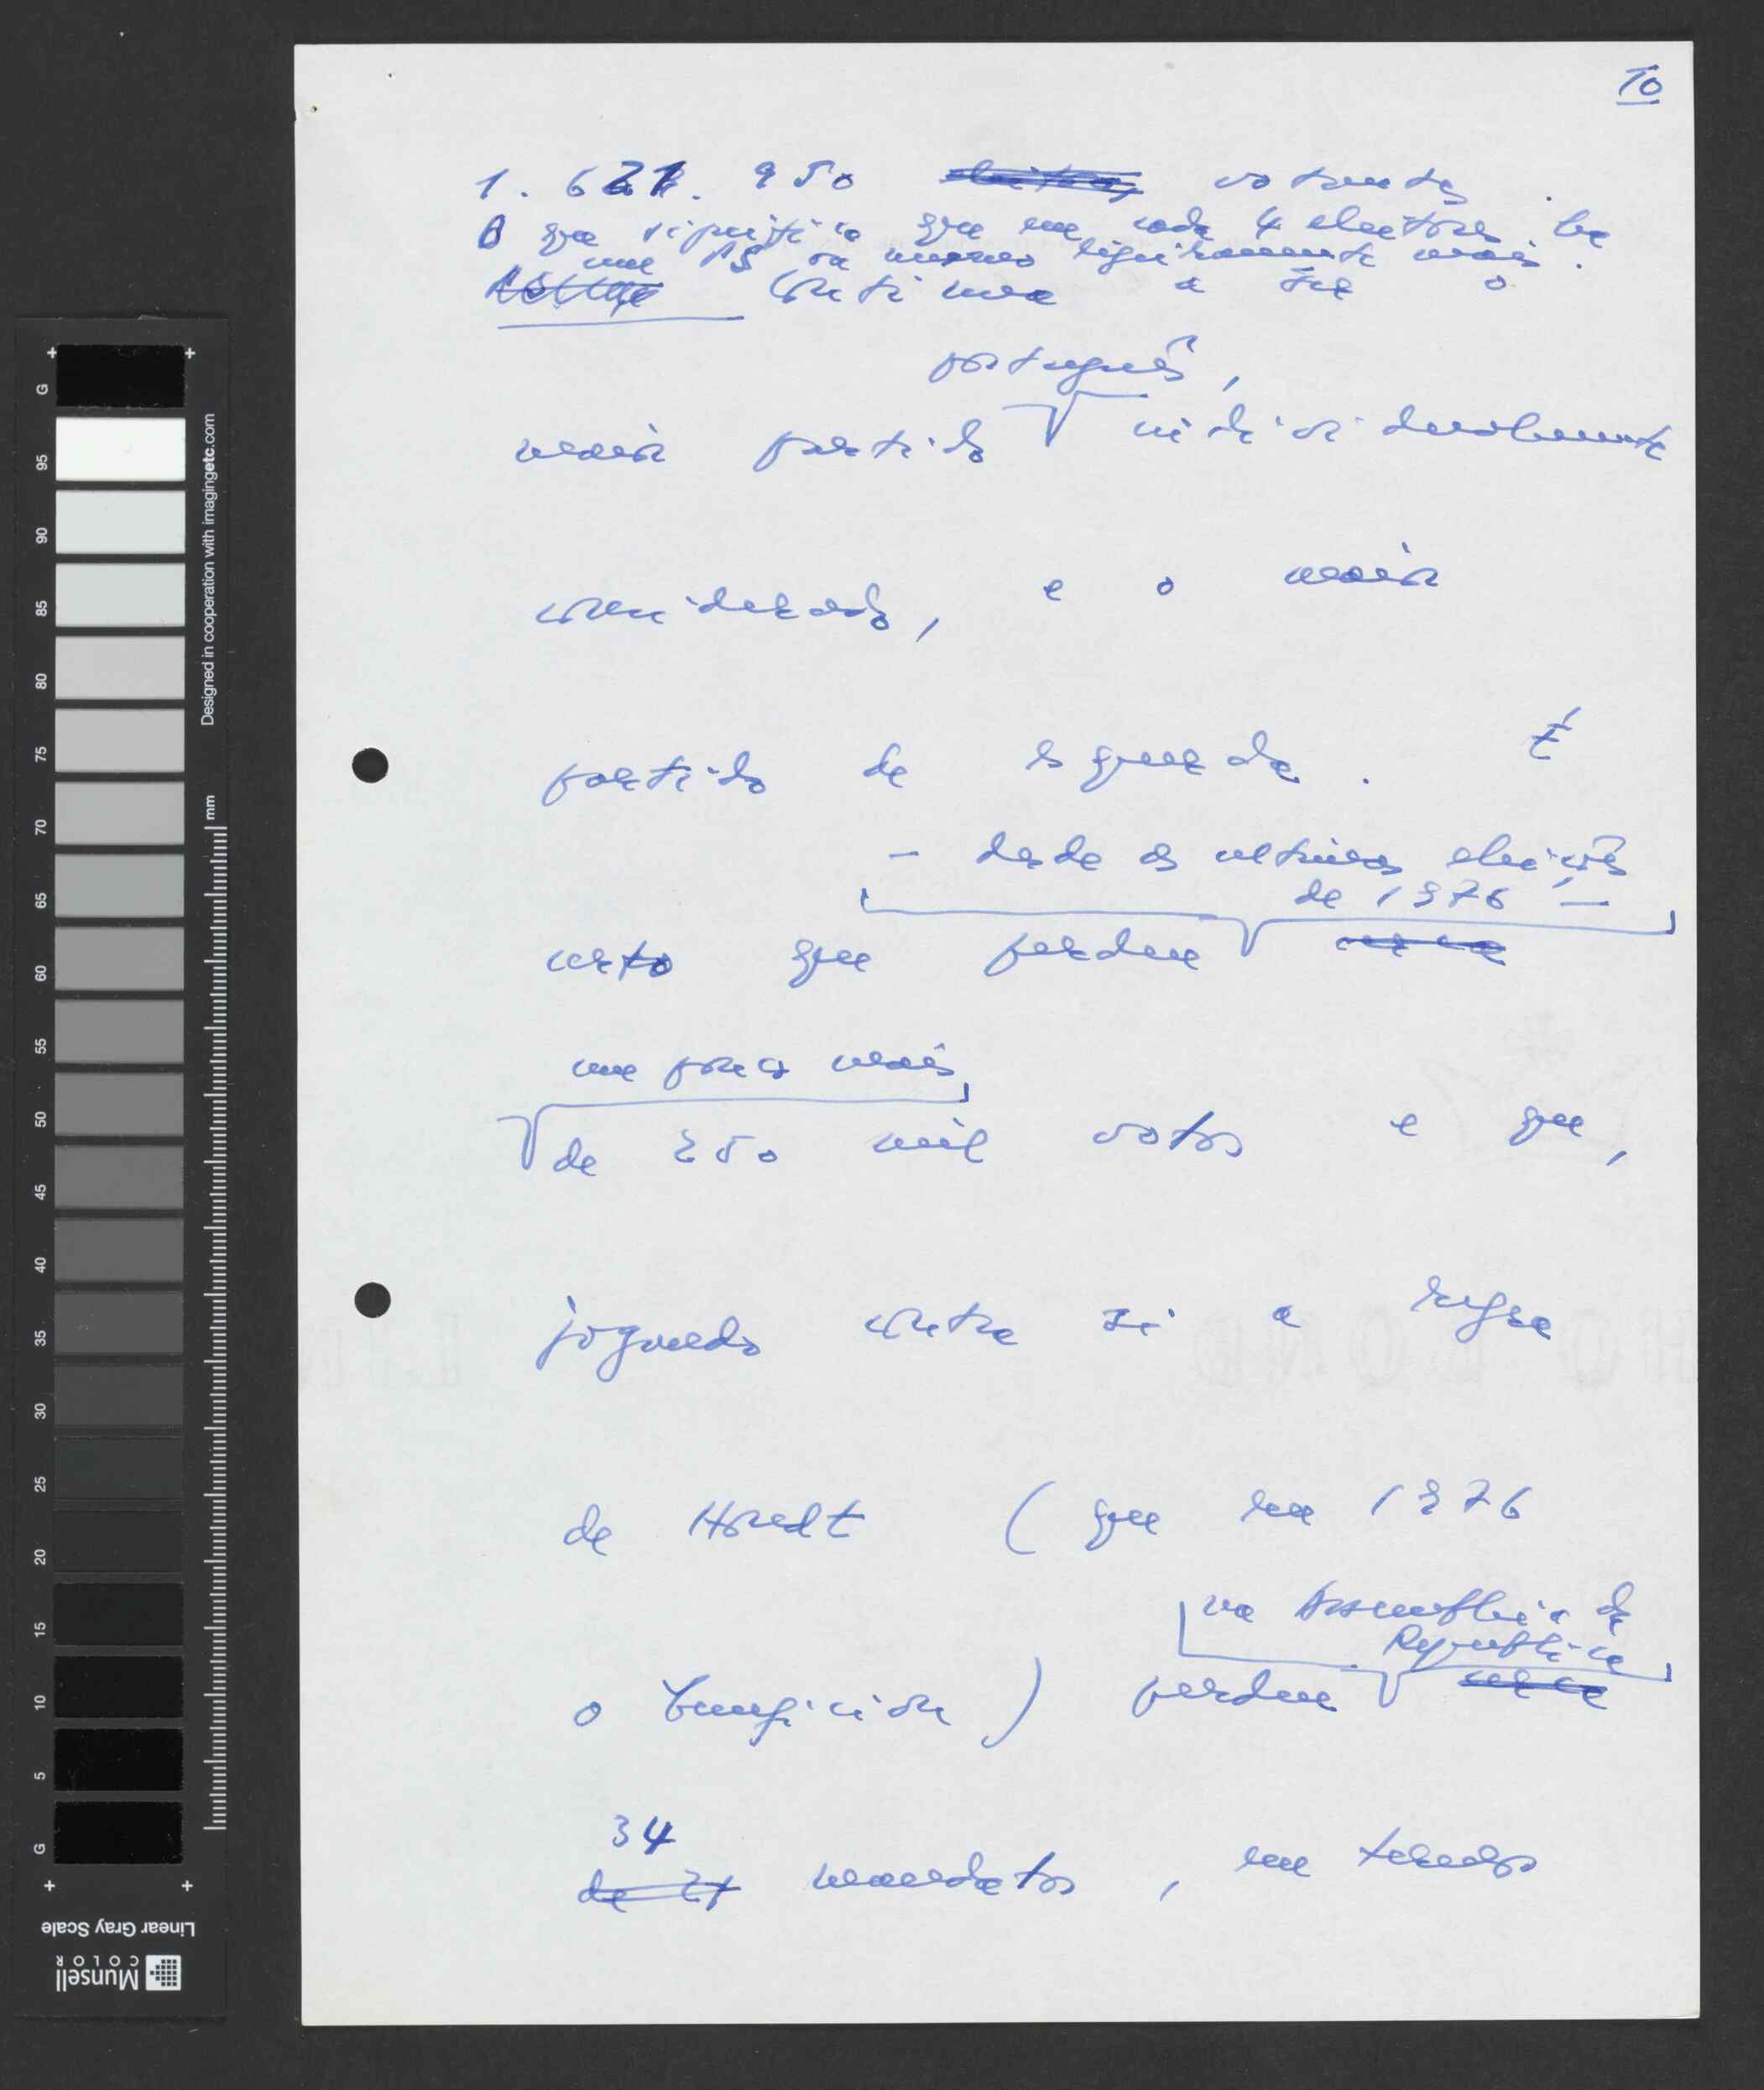 10
1. 621. 950 votantes.
O que significa que em cada 4 eleitores há
um PS ou mesmo ligeiramente mais.
Continua a ser o
português,
maior partido individualmente
considerado, e o maior
partido de esquerda. É
– desde as ultimas eleições
de 1976 –
certo que perdeu
um pouco mais
de 250 mil votos e que,
jogando contra si a regra
de Hondt (que em 1976
na Assembleia da
República
o beneficiou) perdeu
34
mandatos, em termos
G
95
90
85
80
75
70
65
60
55
50
45
40
35
30
25
20
15
10
5
G
Designed in cooperation with imagingetc.com
mm
Linear Gray Scale
Munsell
COLOR